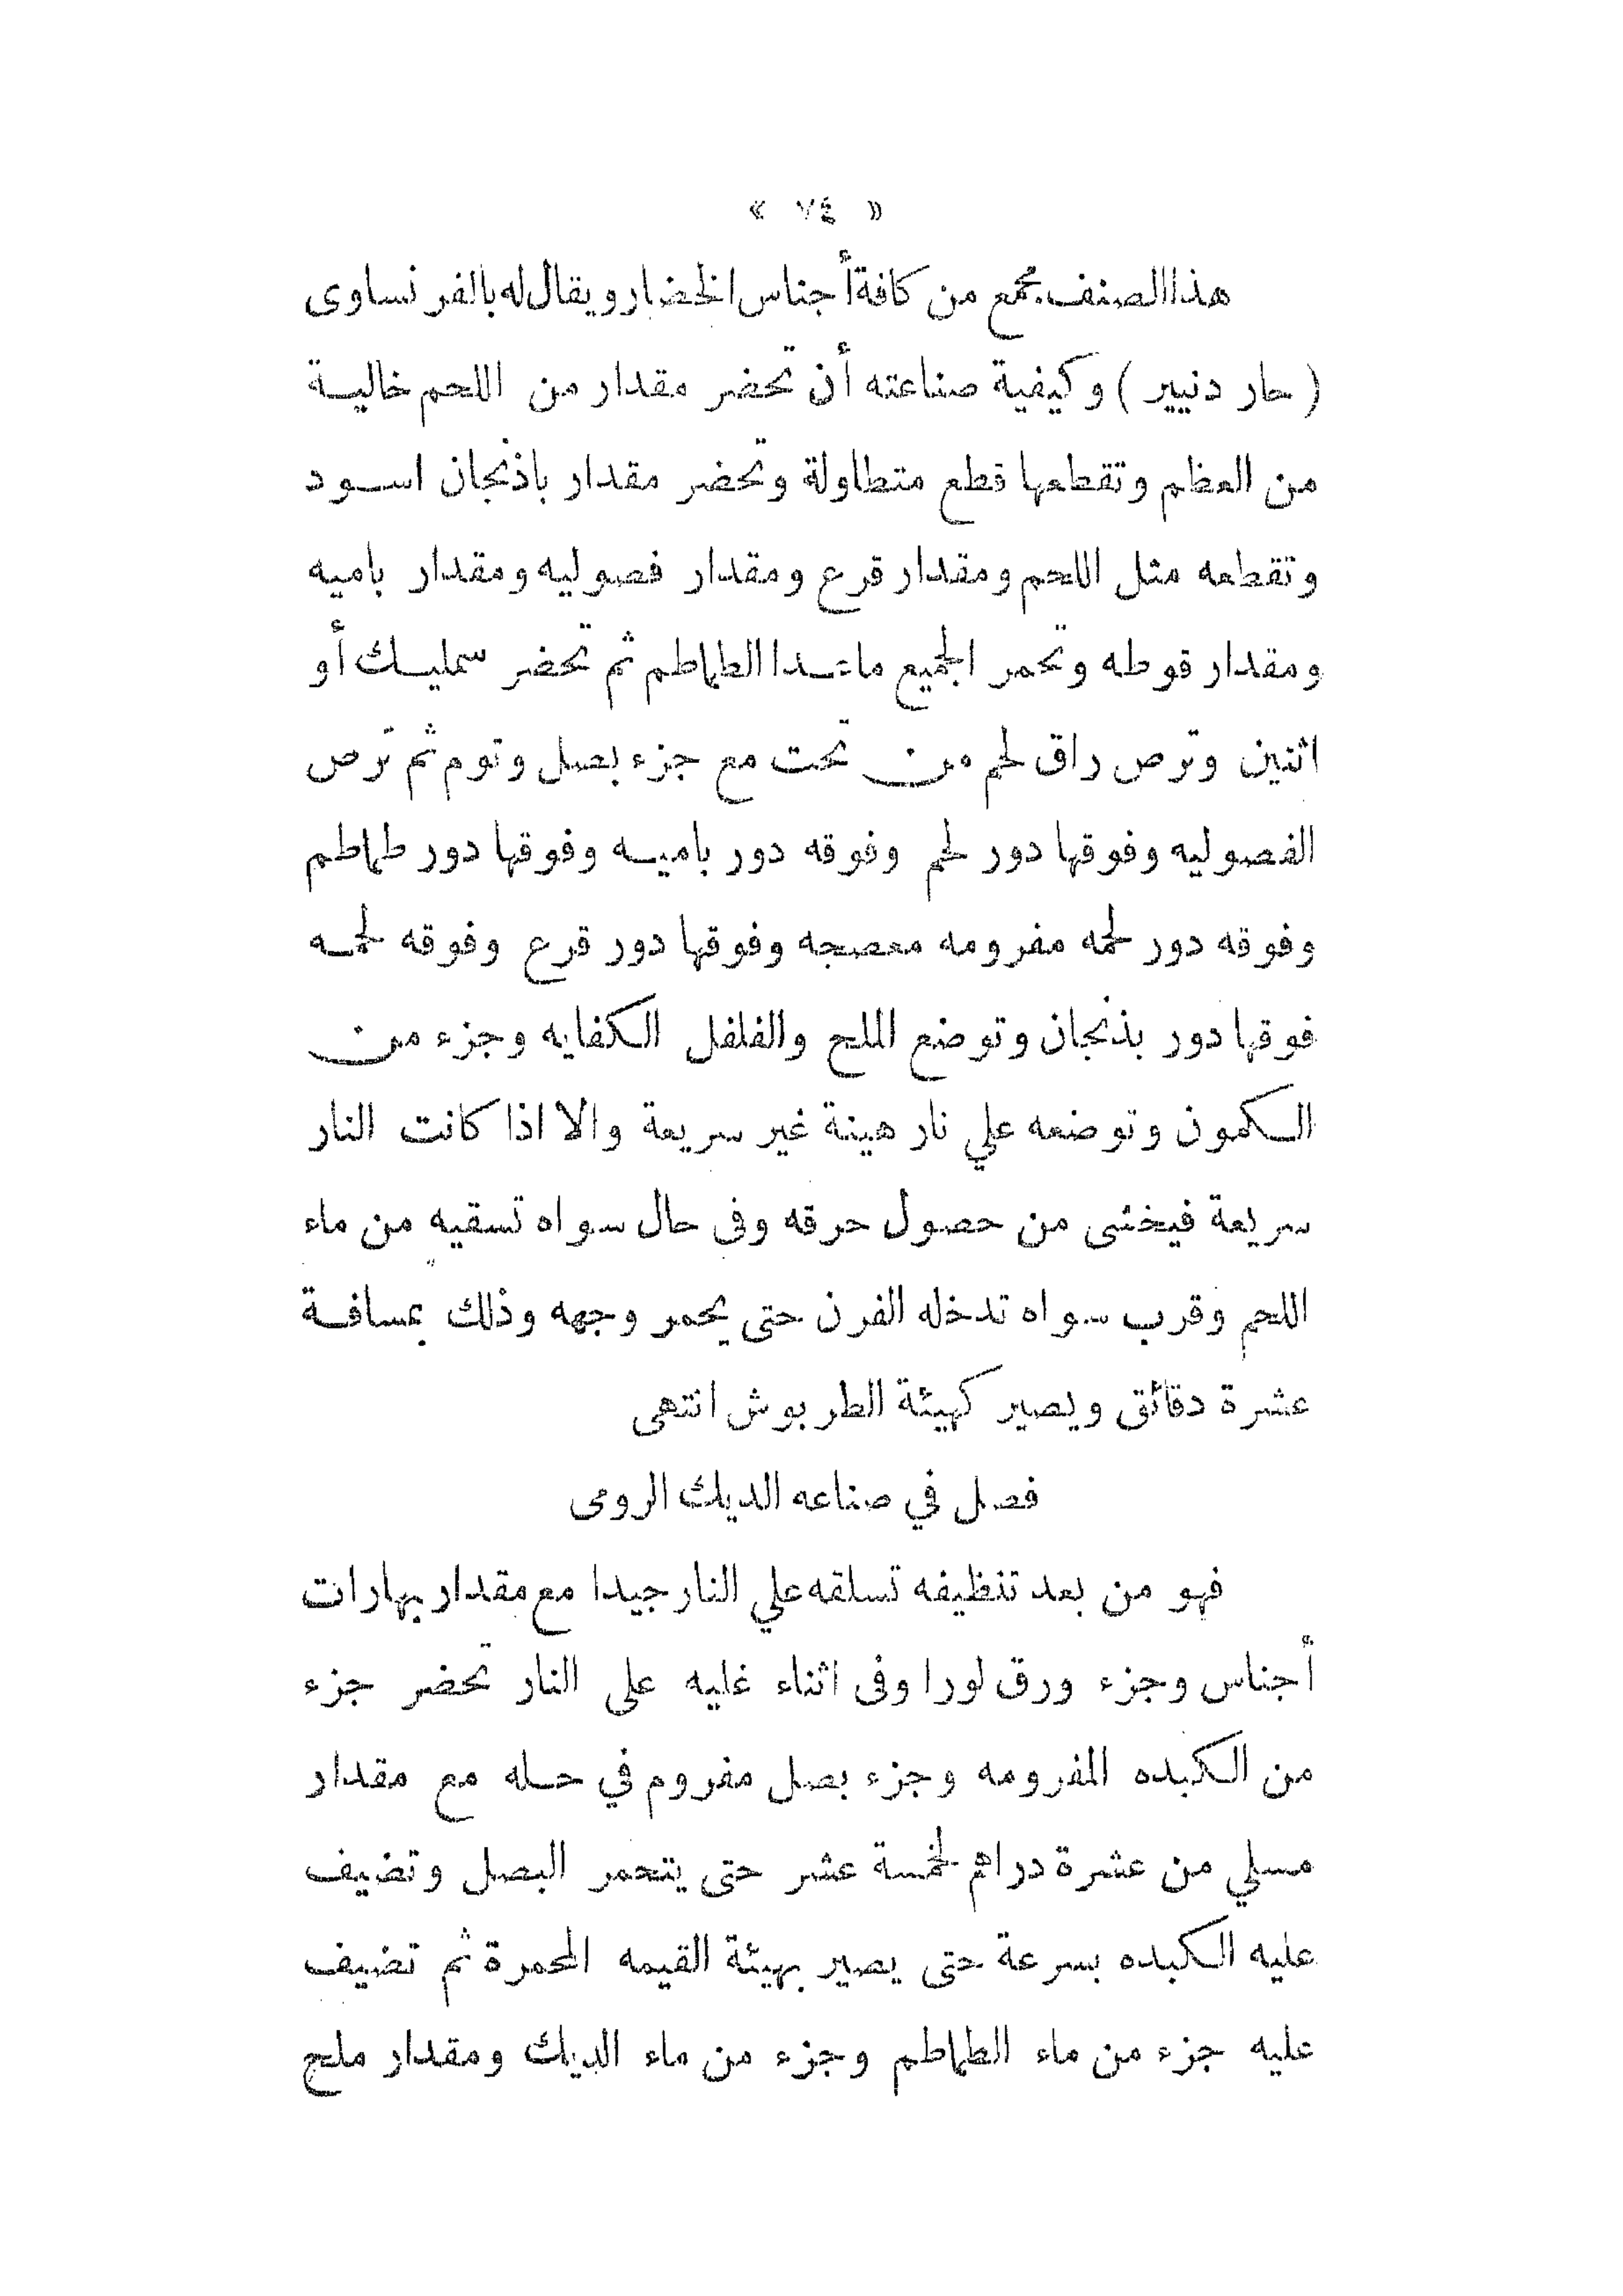 « ٧٤ »
هذا الصنف مجمع من كافة أجناس الخضار ويقال له بالفرنساوى
( حار دنيير ) وكيفية صناعته أن تحضر مقدار من اللحم خالية
من العظم وتقطعها قطع متطاولة وتحضر مقدار باذنجان اسود
وتقطعه مثل اللحم ومقدار قرع ومقدار فصوليه ومقدار باميه
ومقدار قوطه وتحمر الجميع ماعدا الطماطم ثم تحضر سمليك أو
اثنين وترص راق لحم من تحت مع جزء بصل وتوم ثم ترص
الفصوليه وفوقها دور لحم وفوقه دور باميه وفوقها دور طماطم
وفوقه دور لحمه مفرومه معصجه وفوقها دور قرع وفوقه لحمه
فوقها دور بذنجان وتوضع الملح والفلفل الكفايه وجزء من
الكمون وتوضعه علي نار هينة غير سريعة والا اذا كانت النار
سريعة فيخشى من حصول حرقه وفى حال سواه تسقيه من ماء
اللحم وقرب سواه تدخله الفرن حتى يحمر وجهه وذلك بمسافة
عشرة دقائق ويصير كهيئة الطربوش انتهى
فصل في صناعه الديك الرومى
فهو من بعد تنظيفه تسلقه علي النار جيدا مع مقدار بهارات
أجناس وجزء ورق لورا وفى اثناء غليه على النار تحضر جزء
من الكبده المفرومه وجزء بصل مفروم في حله مع مقدار
مسلي من عشرة دراهم لخمسة عشر حتى يتحمر البصل وتضيف
عليه الكبده بسرعة حتى يصير بهيئة القيمه المحمرة ثم تضيف
عليه جزء من ماء الطماطم وجزء من ماء الديك ومقدار ملح